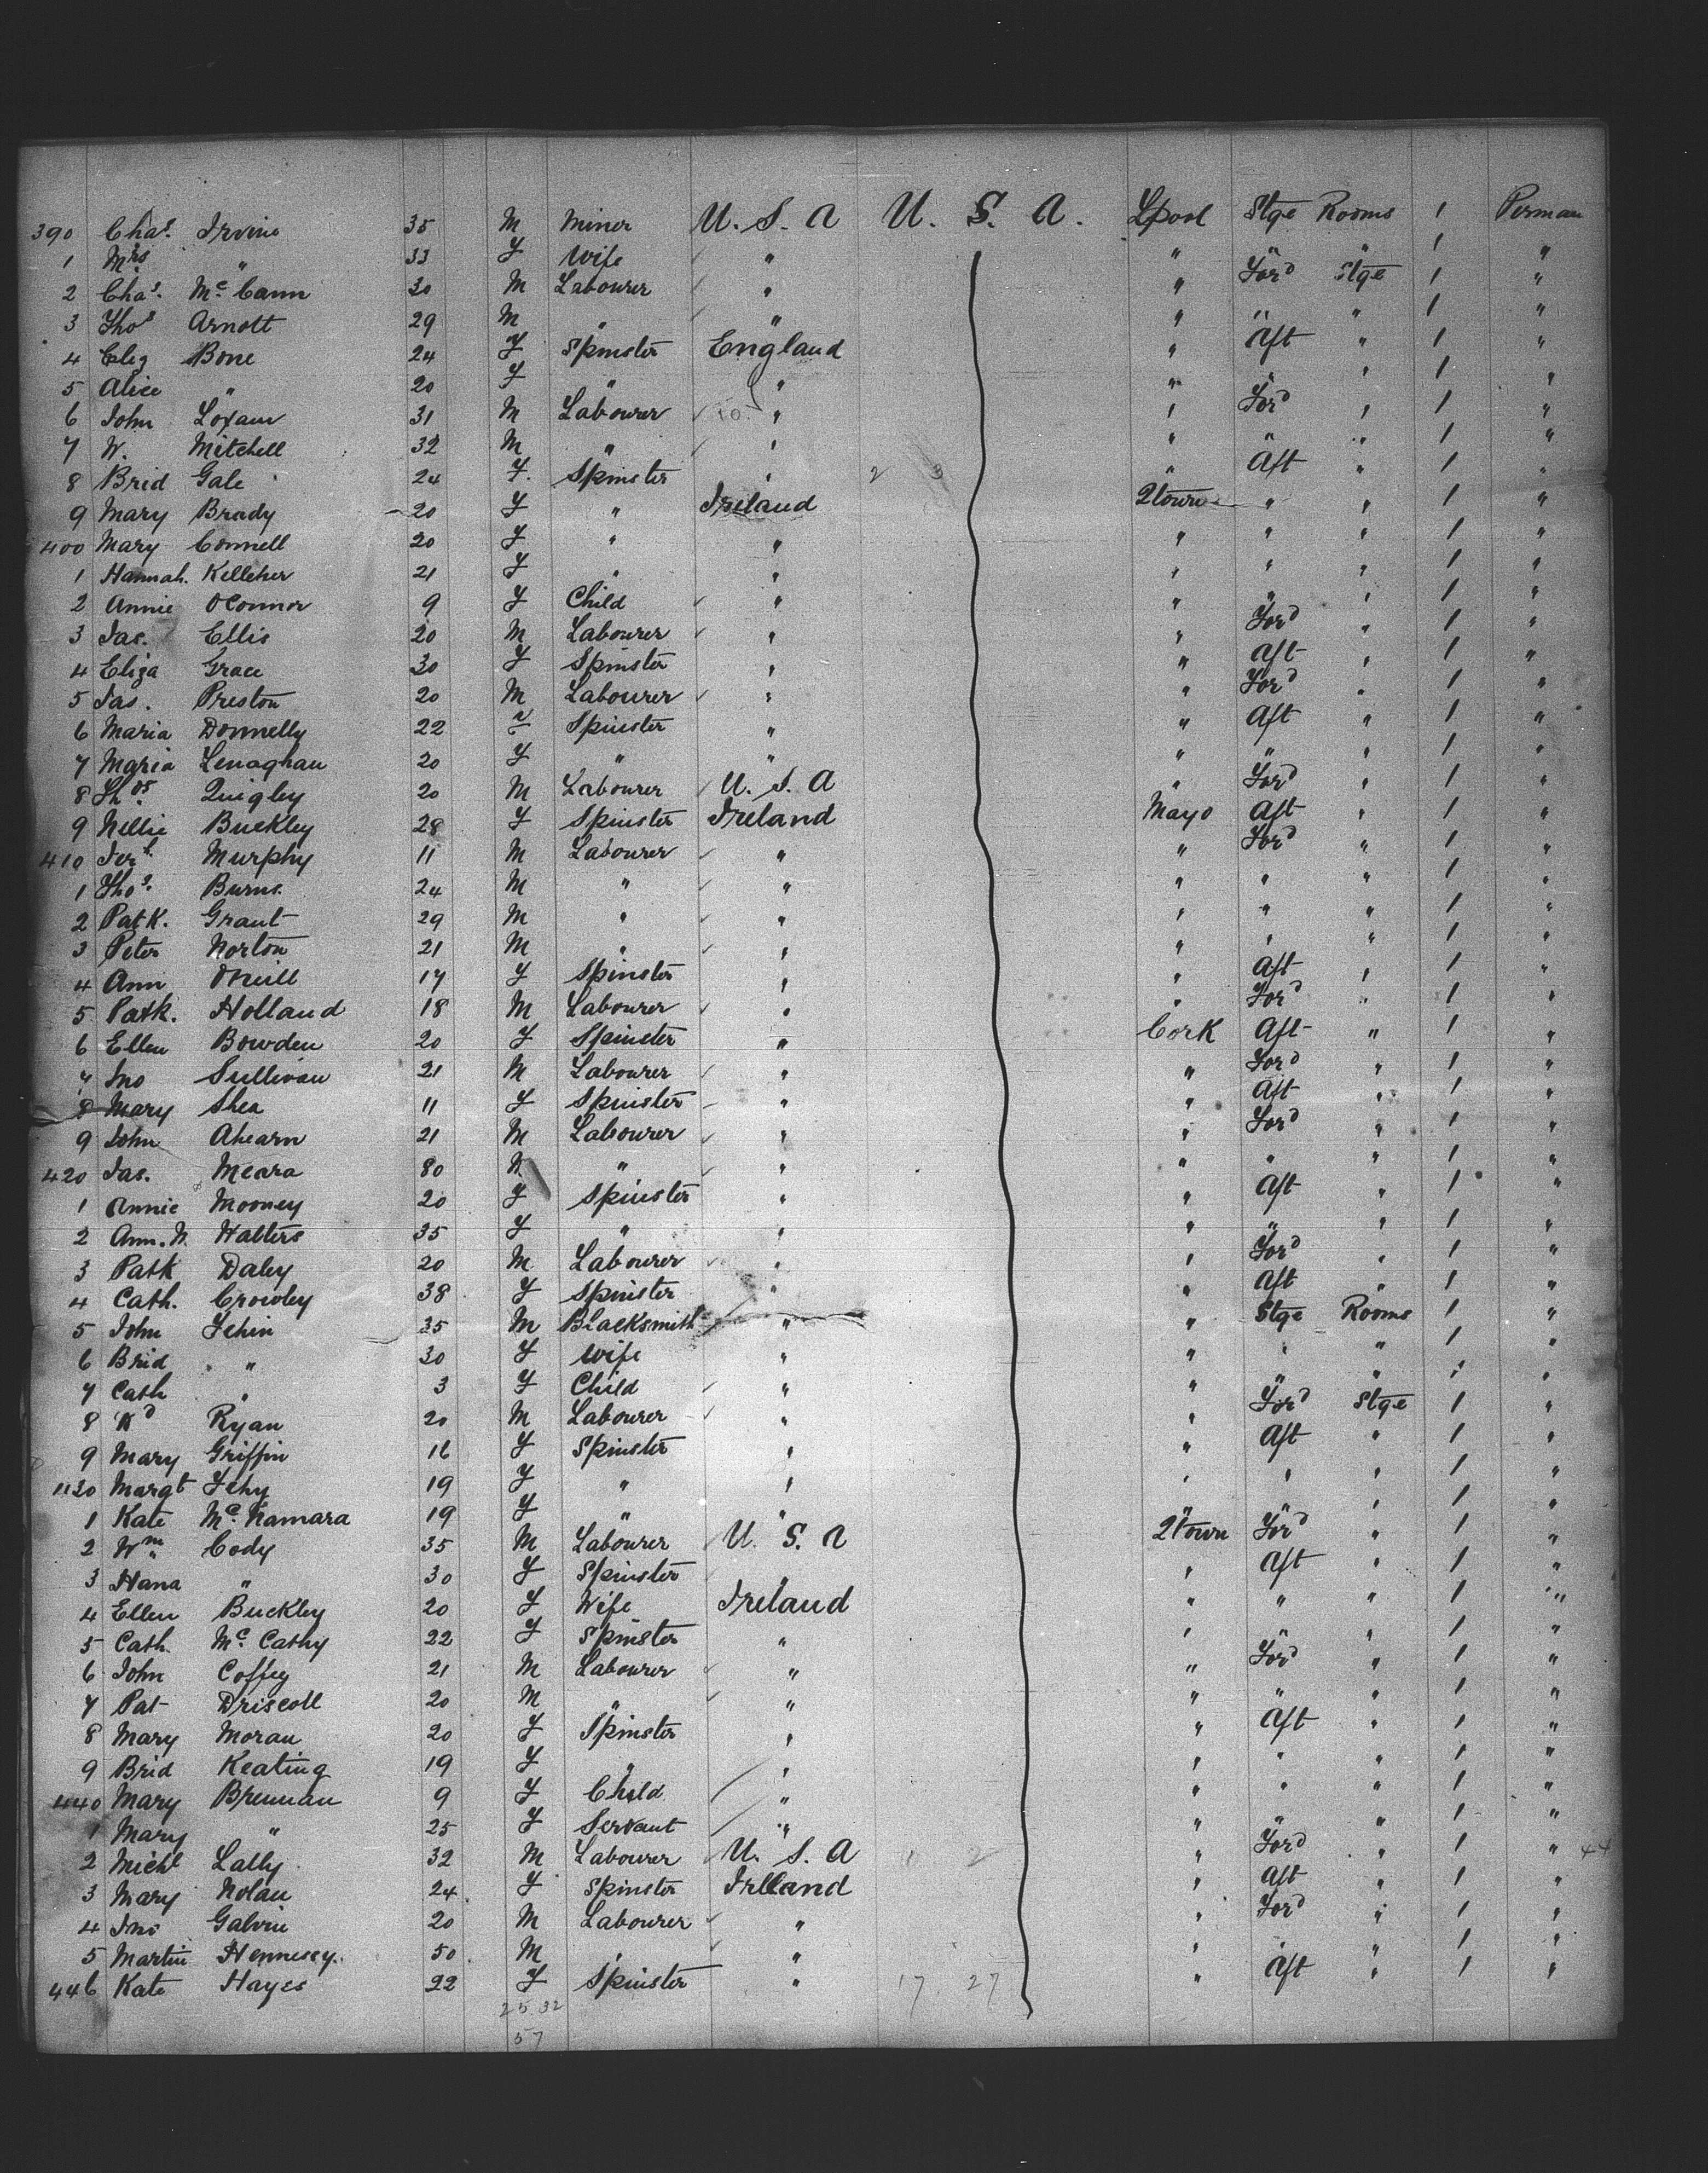 390 Chas. Irvine 35 M Miner U. S. A U. S. A. Lpool Stge Rooms 1 Perman
1 Mrs. " 33 F Wife " " " " 1 "
2 Chas. McCann 30 M Labourer " " Ford Stge 1 "
3 Thos Arnott 29 M " " " " " 1 "
4 Eliz Bone 24 F Spinster England " Aft " 1 "
5 Alice " 20 F " " " " " 1 "
6 John Loxam 31 M Labourer " " Ford " 1 "
7 W. Mitchell 32 M " " " " " 1 "
8 Brid Gale 24 F. Spinster " 2 3 " Aft " 1 "
9 Mary Brady 20 F " Ireland 2town " " 1 "
400 Mary Connell 20 F " " " " " 1 "
1 Hannah. Kelleher 21 F " " " " " 1 "
2 Annie OConnor 9 F Child " " " " 1 "
3 Jas. Ellis 20 M Labourer " " Ford " 1 "
4 Eliza Grace 30 F Spinster " " Aft " 1 "
5 Jas. Preston 20 M Labourer " " Ford " 1 "
6 Maria Donnelly 22 F Spinster " " Aft " 1 "
7 Maria Lenaghan 20 F " " " " " 1 "
8 Thos. Quigley 20 M Labourer U. S. A " Ford " 1 "
9 Nellie Buckley 28 F Spinster Ireland Mayo Aft " 1 "
410 Jerh. Murphy 11 M Labourer " " Ford " 1 "
1 Thos. Burns. 24 M " " " " " 1 "
2 Patk. Grant 29 M " " " " " 1 "
3 Peter Norton 21 M " " " " " 1 "
4 Ann ONeill 17 F Spinster " " Aft " 1 "
5 Patk. Holland 18 M Labourer " " Ford " 1 "
6 Ellen Bowden 20 F Spinster " Cork Aft " 1 "
7 Jno Sullivan 21 M Labourer " " Ford " 1 "
8 Mary Shea 11 F Spinster " " Aft " 1 "
9 John Ahearn 21 M Labourer " " Ford " 1 "
420 Jas. Meara 80 M " " " " " 1 "
1 Annie Mooney 20 F Spinster " " Aft " 1 "
2 Ann. Walters 35 F " " " " " 1 "
3 Patk Daley 20 M Labourer " " Ford " 1 "
4 Cath. Crowley 38 F Spinster " " Aft " 1 "
5 John Fehin 35 M Blacksmith " " Stge Rooms 1 "
6 Brid " 30 F Wife " " " " 1 "
7 Cath " 3 F Child " " " " 1 "
8 Ryan 20 M Labourer " " Ford Stge 1 "
9 Mary Griffin 16 F Spinster " " Aft " 1 "
1120 Margt Fehy 19 F " " " " " 1 "
1 Kate McNamara 19 F " " " " " 1 "
2 Wm Cody 35 M Labourer U. S. A 2town Ford " 1 "
3 Hana " 30 F Spinster " " Aft " 1 "
4 Ellen Buckley 20 F Wife Ireland " " " 1 "
5 Cath. McCathy 22 F Spinster " " " " 1 "
6 John Coffey 21 M Labourer " " Ford " 1 "
7 Pat Driscoll 20 M " " " " " 1 "
8 Mary Moran 20 F Spinster " " Aft " 1 "
9 Brid Keating 19 F " " " " " 1 "
440 Mary Brennan 9 F Child " " " " 1 "
1 Mary " 25 F Servant " " " " 1 "
2 Michl Lally 32 M Labourer U. S. A 2 " Ford " 1 " 44
3 Mary Nolan 24 F Spinster Ireland " Aft " 1 "
4 Jno Galvin 20 M Labourer " " Ford " 1 "
5 Martin Hennessy. 50 M " " " " " 1 "
446 Kate Hayes 22 F Spinster " 17 27 " Aft " 1 "
25 32
57